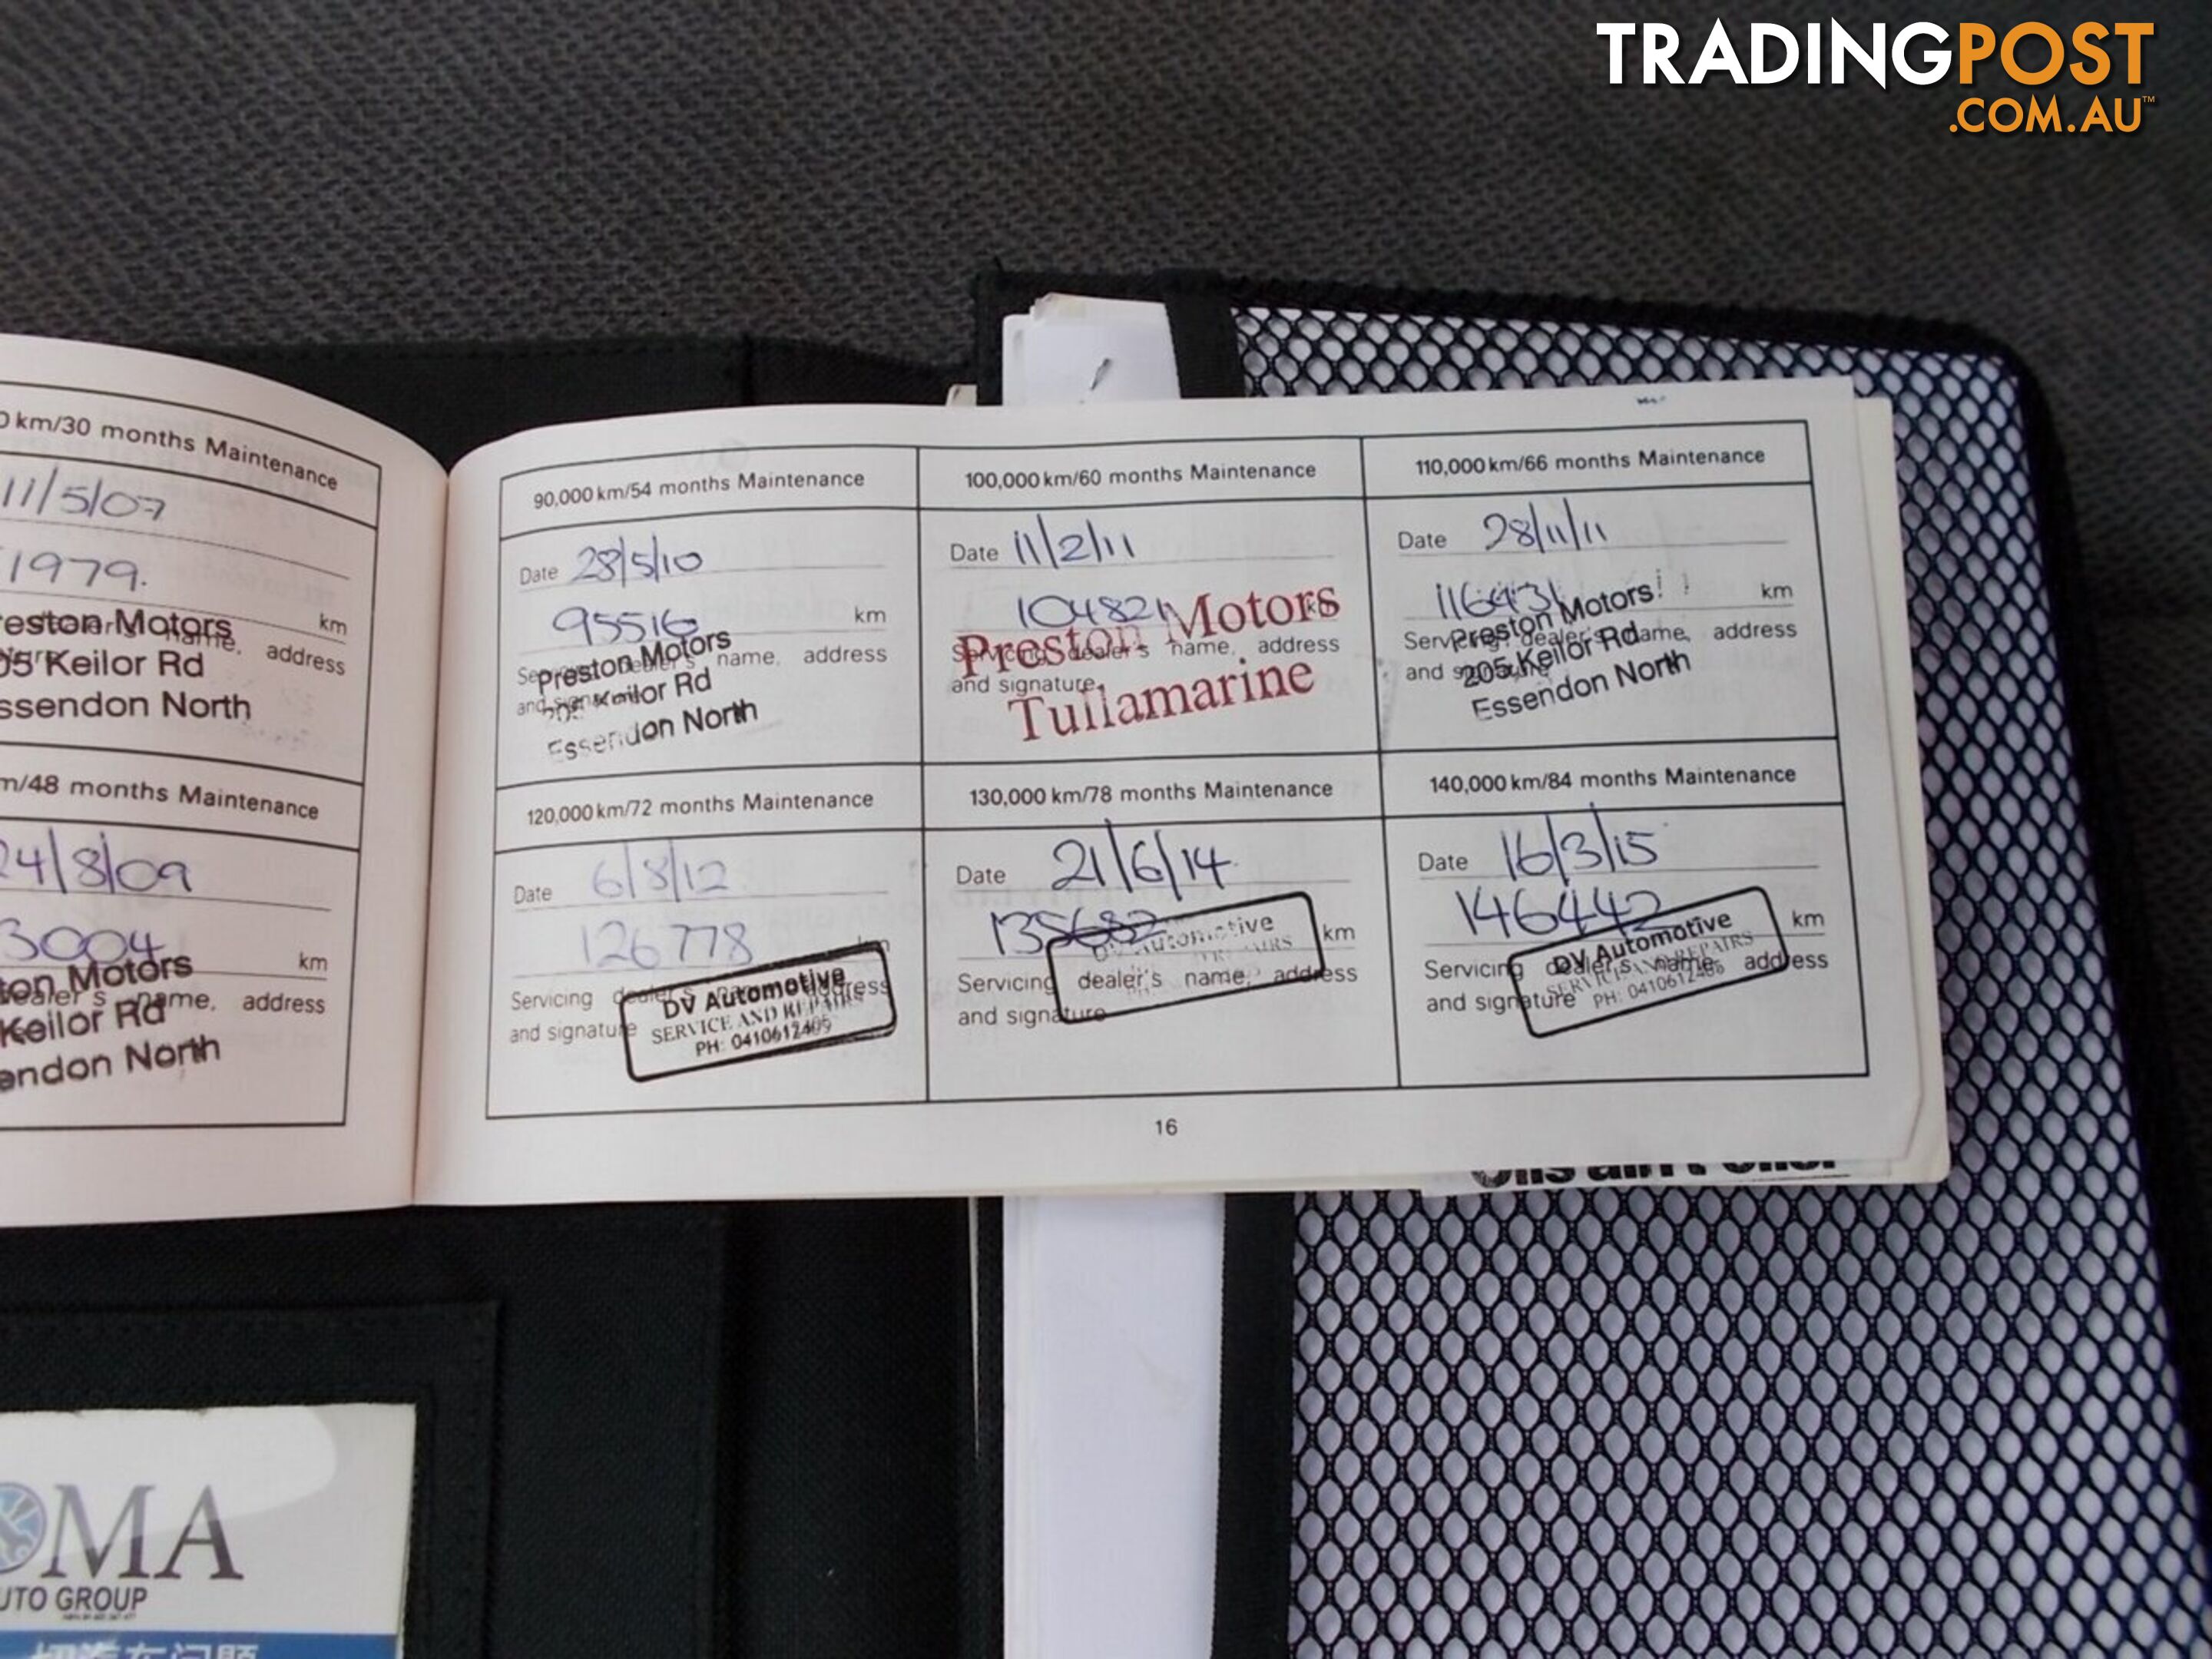 TRADINGPOST
.COM.AU™
0 km/30 months Maintenance
11/5/07
1979.
km
name, address
Preston Motors
05 Keilor Rd
ssendon North
m/48 months Maintenance
24/8/09
3004
km
ton Motors
dealer's name, address
Keilor Rd
endon North
90,000 km/54 months Maintenance
Date 28/5/10
95516 km
Servicing dealer's name, address
and signature
Preston Motors
205 Keilor Rd
Essendon North
100,000 km/60 months Maintenance
Date 11/2/11
104821 km
Servicing dealer's name, address
and signature
Preston Motors
Tullamarine
110,000 km/66 months Maintenance
Date 28/11/11
116431 km
Servicing dealer's name, address
and signature
Preston Motors
205 Keilor Rd
Essendon North
120,000 km/72 months Maintenance
Date 6/8/12
126778 km
Servicing dealer's name, address
and signature
DV Automotive
SERVICE AND REPAIRS
PH: 0410612405
130,000 km/78 months Maintenance
Date 21/6/14
135682 km
Servicing dealer's name, address
and signature
DV Automotive
140,000 km/84 months Maintenance
Date 16/3/15
146442 km
Servicing dealer's name, address
and signature
DV Automotive
SERVICE AND REPAIRS
PH: 0410612405
16
OMA
UTO GROUP
切汽车问题